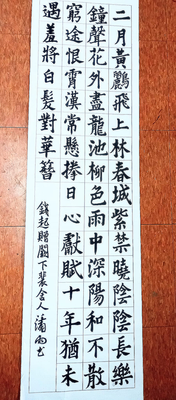 二月黃鸝飛上林春城紫禁曉陰陰長樂
鐘聲花外盡龍池柳色雨中深陽和不散
窮途恨霄漢常懸捧日心獻賦十年猶未
遇羞將白髮對華簪
錢起贈闕下裴舍人 书